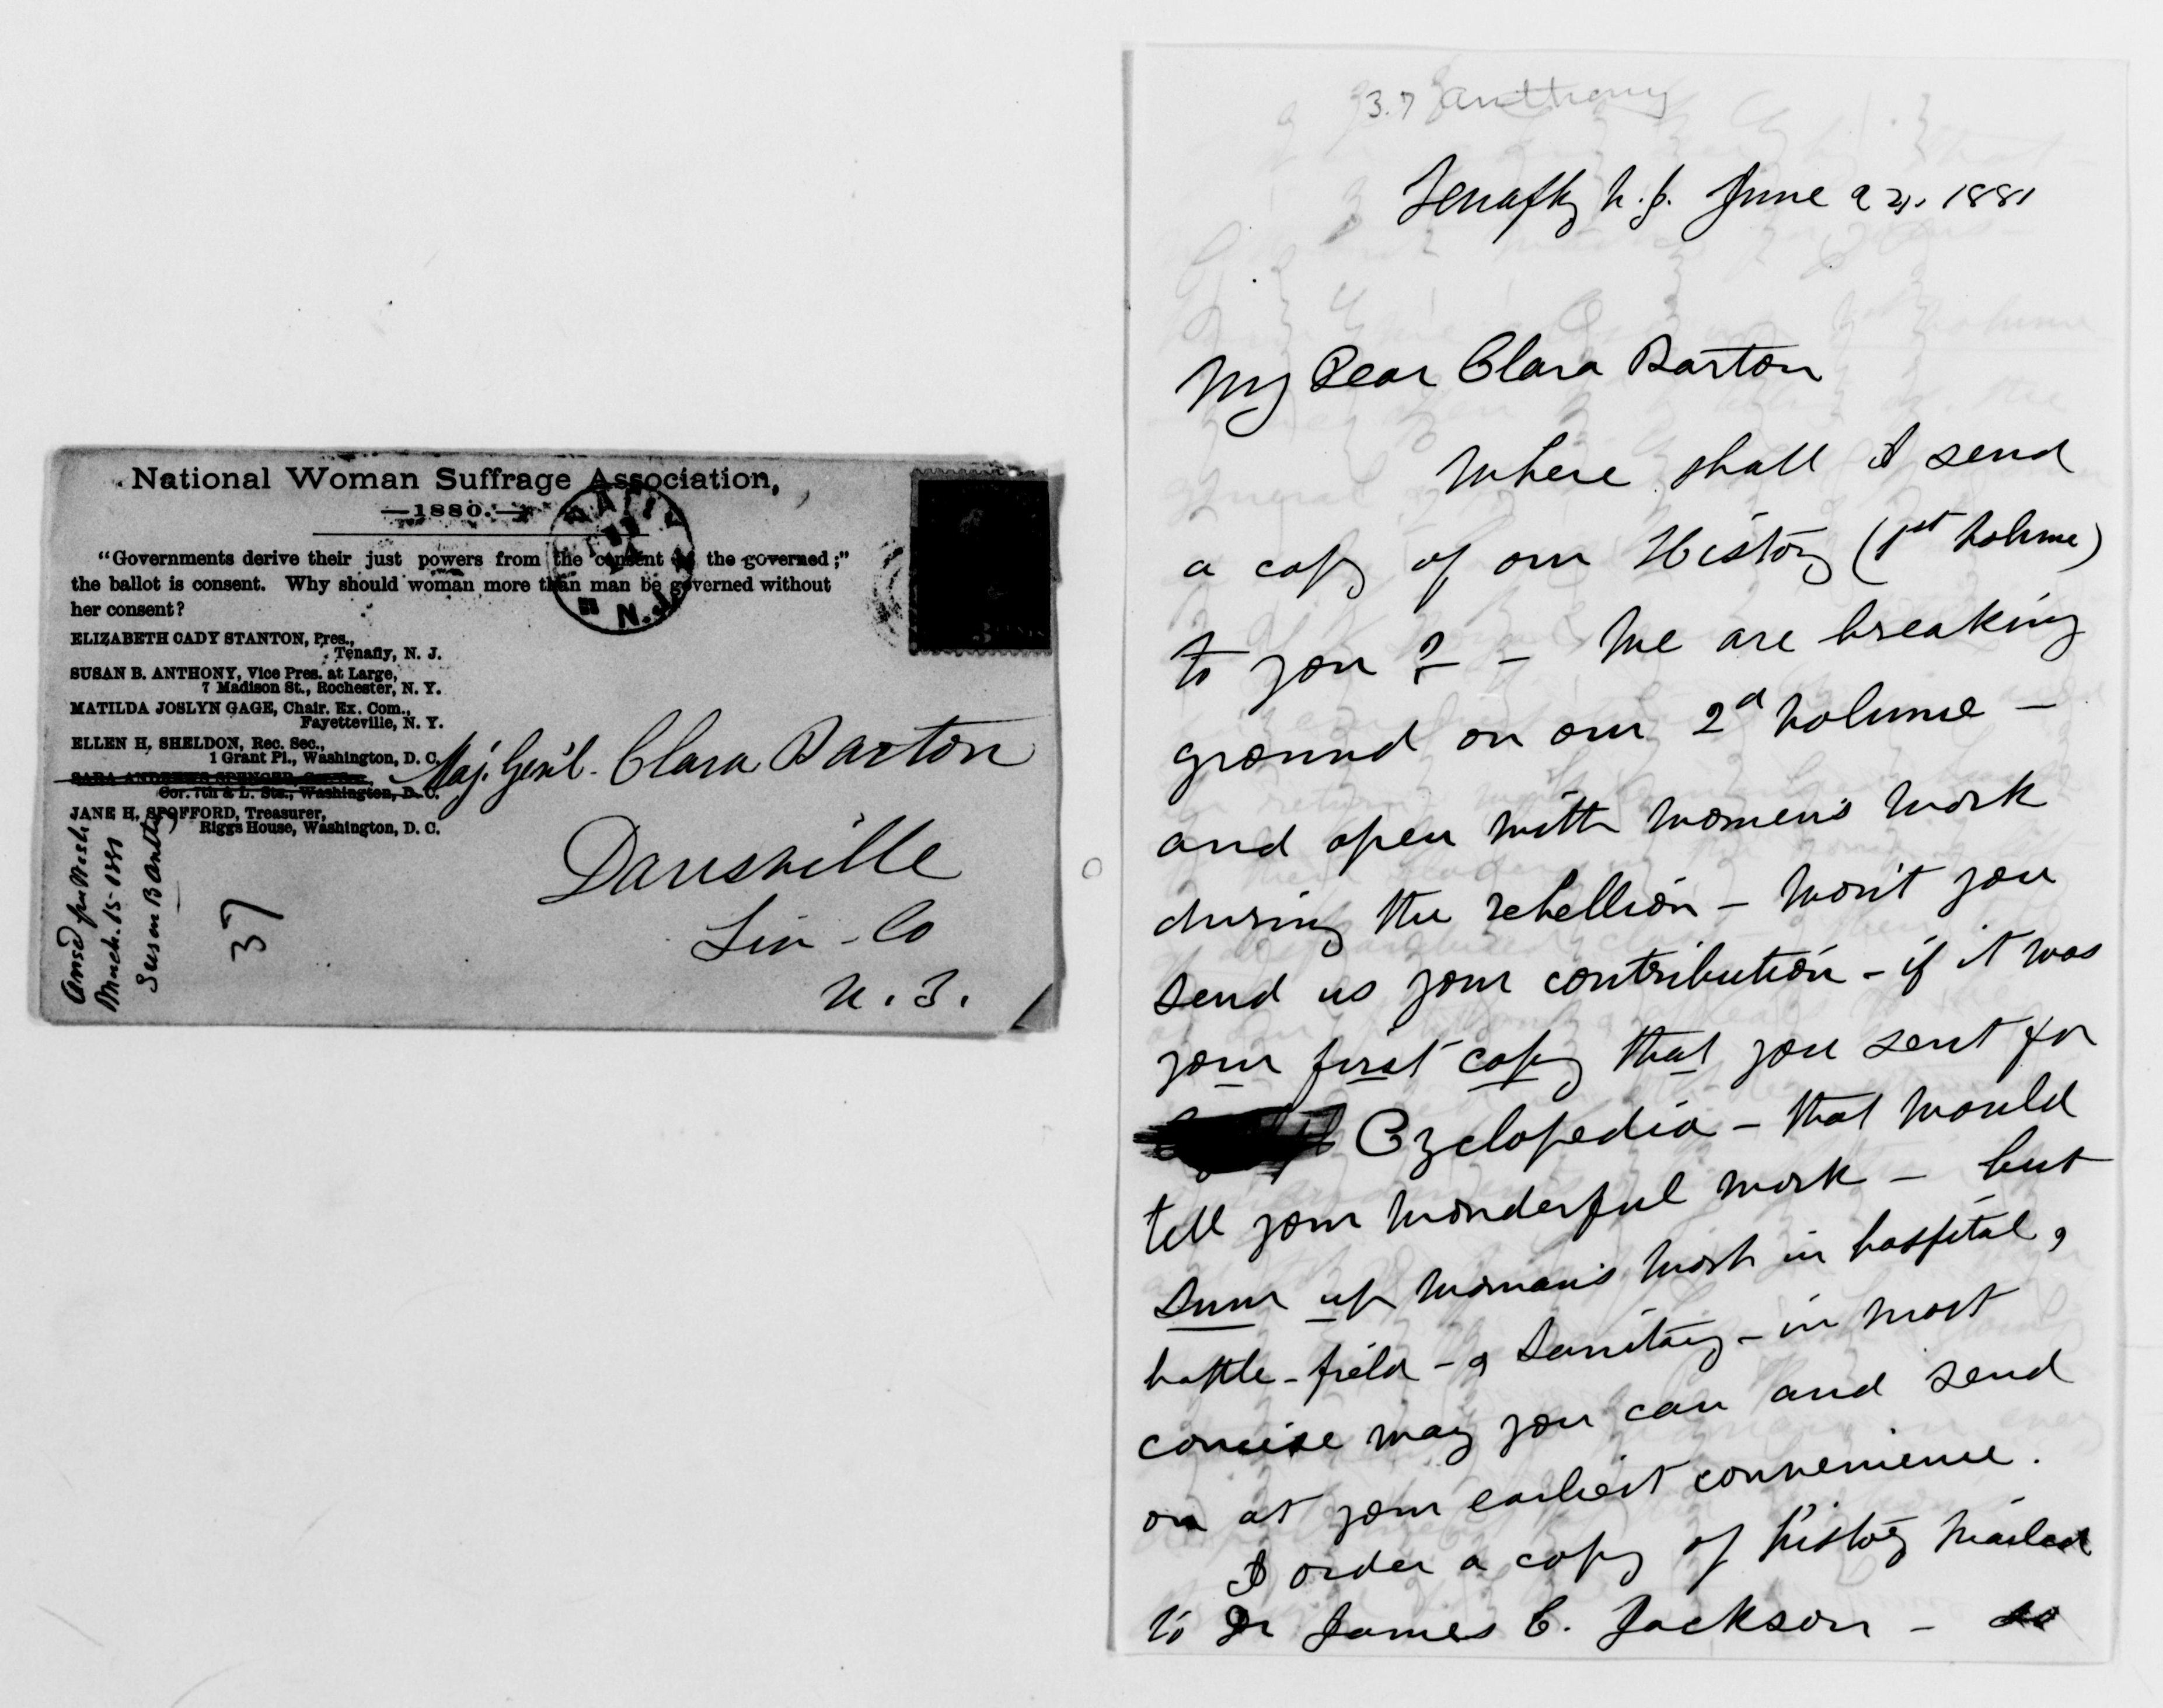 National Woman Suffrage Association,
—1880.—
"Governments derive their just powers from the consent of the governed;"
the ballot is consent. Why should woman more than man be governed without
her consent?
ELIZABETH CADY STANTON, Pres.,
Tenafly, N. J.
SUSAN B. ANTHONY, Vice Pres. at Large,
7 Madison St., Rochester, N. Y.
MATILDA JOSLYN GAGE, Chair. Ex. Com.,
Fayetteville, N. Y.
ELLEN H. SHELDON, Rec. Sec.,
1 Grant Pl., Washington, D. C.
SARA ANDREWS SPENCER, Cor. Sec.,
Cor. 7th & L. Sts., Washington, D. C.
JANE H. SPOFFORD, Treasurer,
Riggs House, Washington, D. C.
N.J.
Maj. Gen'l. Clara Barton
Dansville
Liv - Co
N. Y.
March. 15-
Susan B Anthony
37
37 Anthony
Tenafly N. J. June 1881
My Dear Clara Barton
Where shall I send
a copy of our History (1st volume)
to you? - We are breaking
ground on our 2d volume -
and open with women's work
during the rebellion - won't you
send us your contribution - if it was
your first copy that you sent for
Cyclopedia - that would
tell your wonderful work - but
sum up woman's work in hospital,
battle-field - & Sanitary - in most
concise way you can and send
on at your earliest convenience.
I order a copy of History mailed
to Dr James C. Jackson -